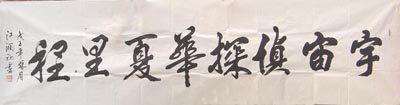 宇宙偵探華夏里程
戊子年